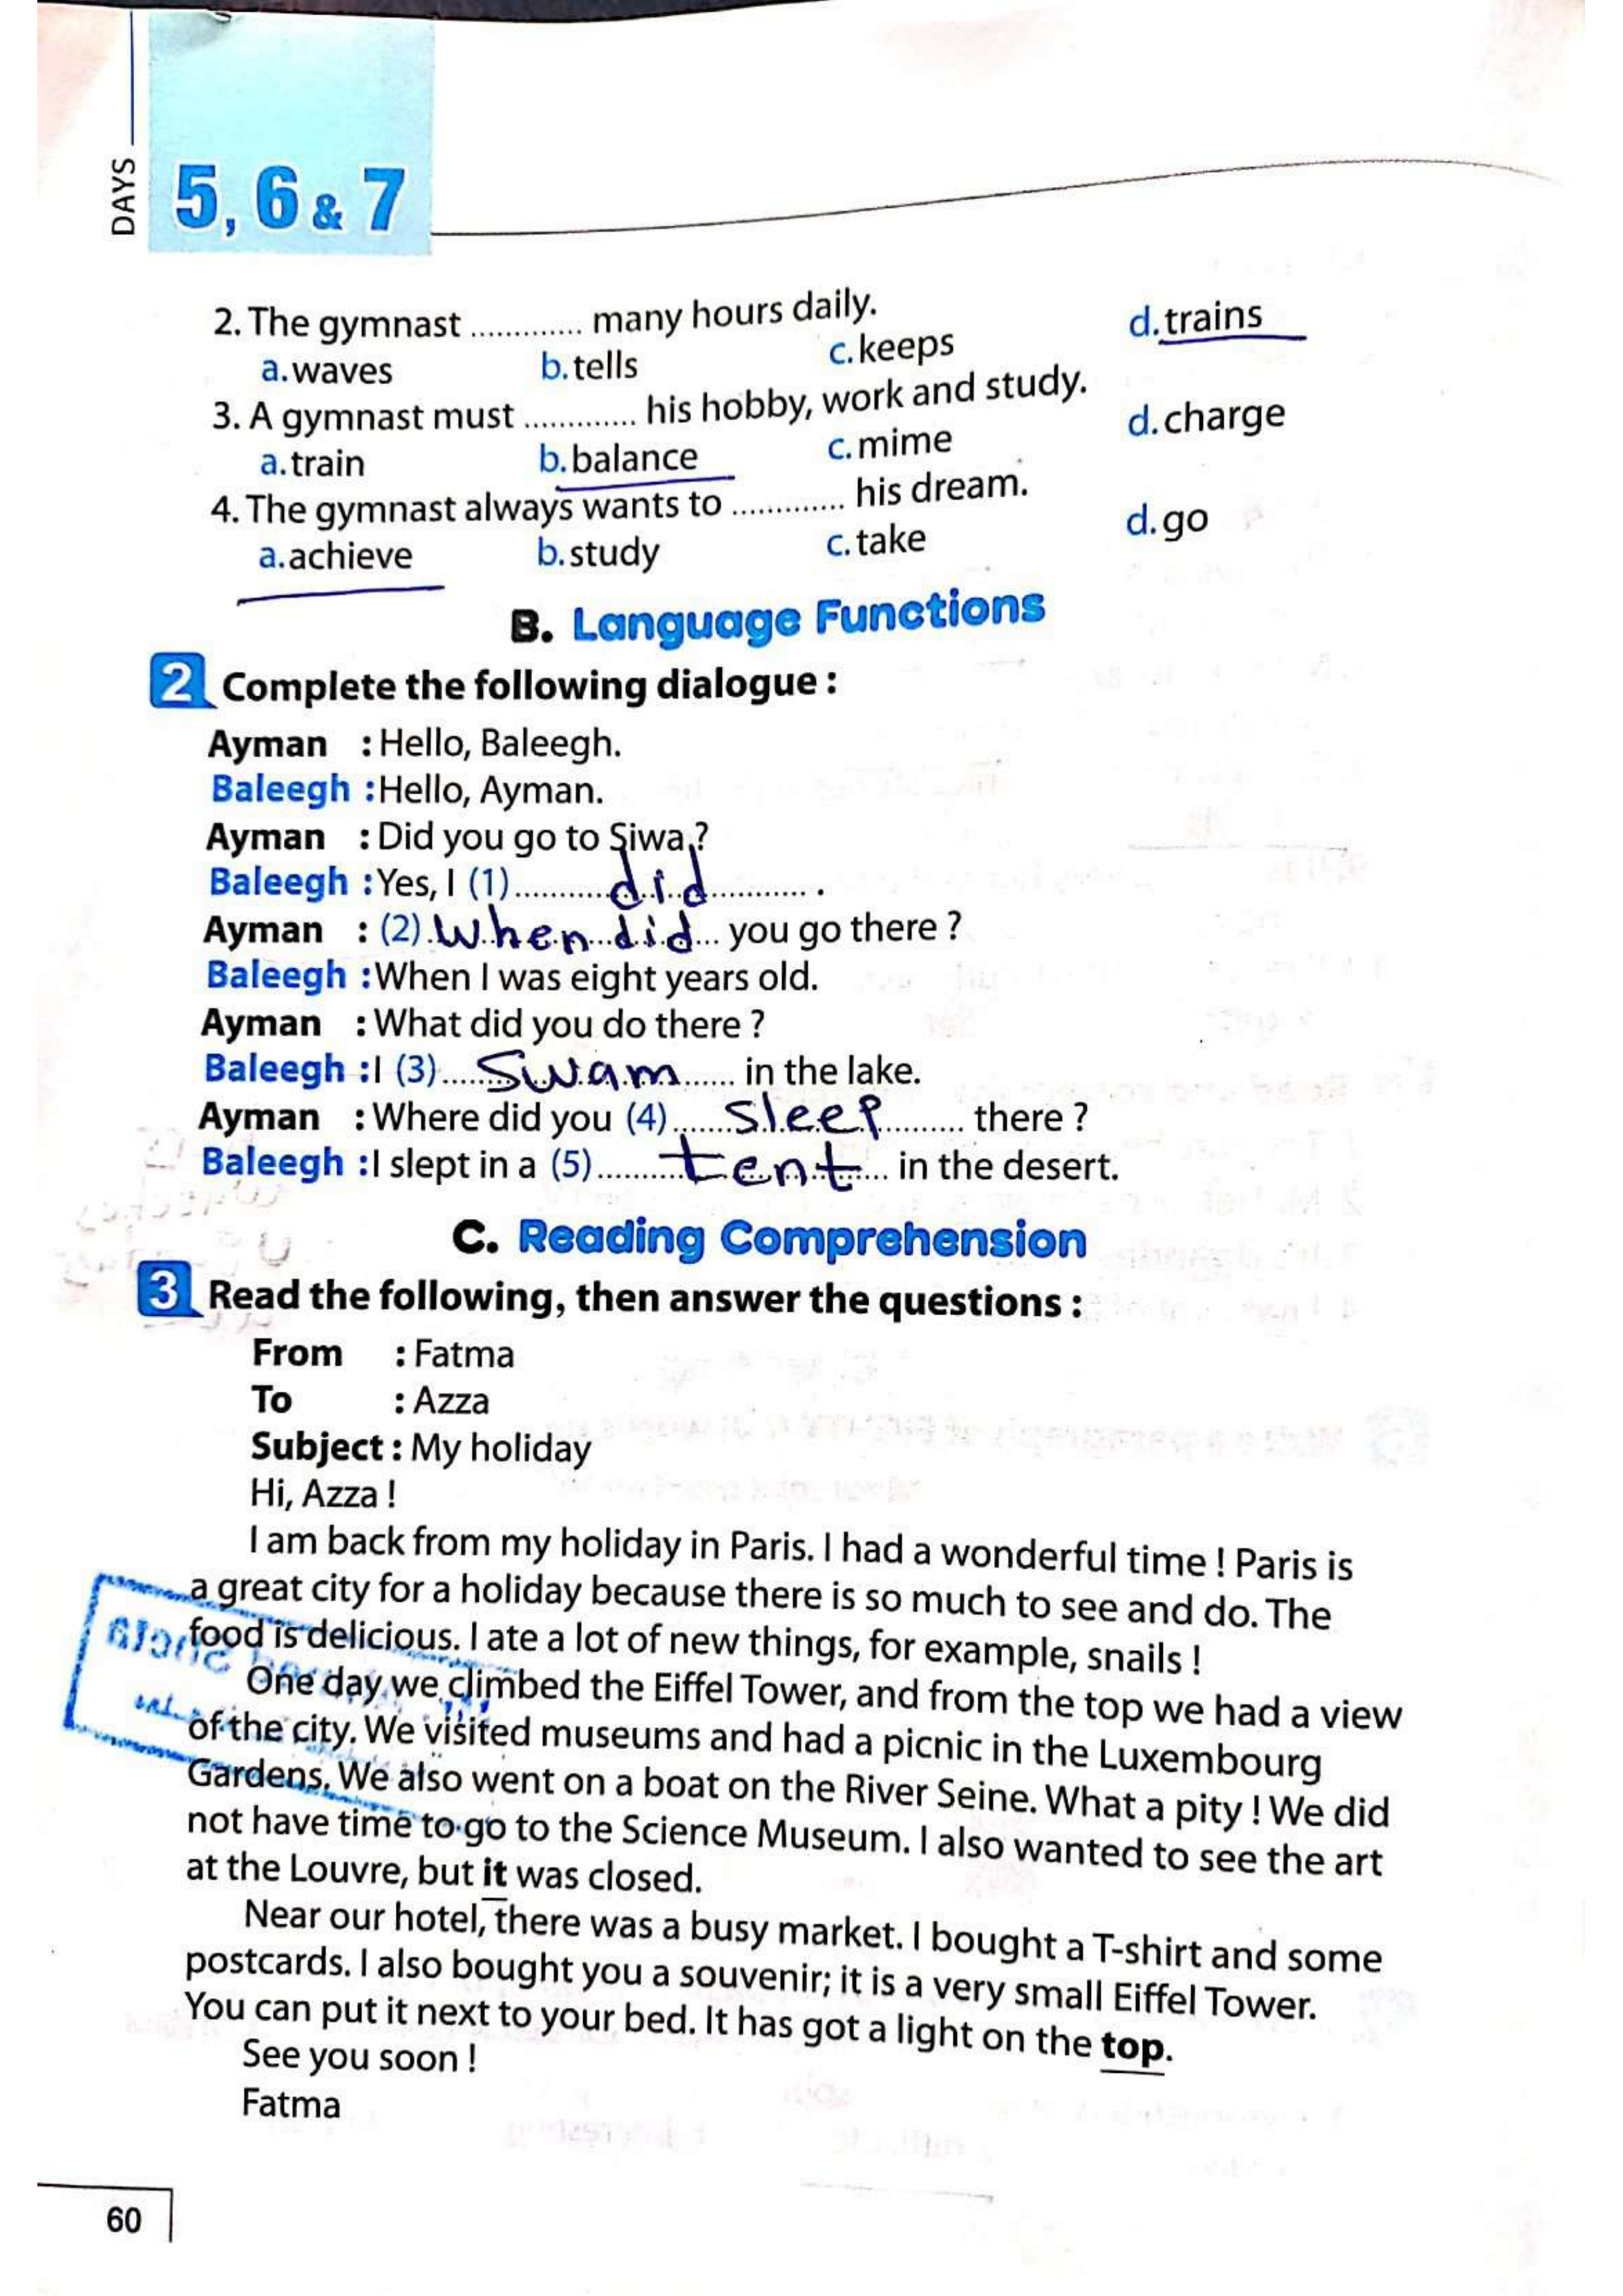 DAYS
5, 6 & 7
2. The gymnast ............. many hours daily.
a. waves b. tells c. keeps d. trains
3. A gymnast must ............. his hobby, work and study.
a. train b. balance c. mime d. charge
4. The gymnast always wants to ............. his dream.
a. achieve b. study c. take d. go
B. Language Functions
2 Complete the following dialogue :
Ayman : Hello, Baleegh.
Baleegh : Hello, Ayman.
Ayman : Did you go to Siwa ?
Baleegh : Yes, I (1) did .
Ayman : (2) When did you go there ?
Baleegh : When I was eight years old.
Ayman : What did you do there ?
Baleegh : I (3) Swam in the lake.
Ayman : Where did you (4) Sleep there ?
Baleegh : I slept in a (5) tent in the desert.
C. Reading Comprehension
3 Read the following, then answer the questions :
From : Fatma
To : Azza
Subject : My holiday
Hi, Azza !
I am back from my holiday in Paris. I had a wonderful time ! Paris is
a great city for a holiday because there is so much to see and do. The
food is delicious. I ate a lot of new things, for example, snails !
One day we climbed the Eiffel Tower, and from the top we had a view
of the city. We visited museums and had a picnic in the Luxembourg
Gardens. We also went on a boat on the River Seine. What a pity ! We did
not have time to go to the Science Museum. I also wanted to see the art
at the Louvre, but it was closed.
Near our hotel, there was a busy market. I bought a T-shirt and some
postcards. I also bought you a souvenir; it is a very small Eiffel Tower.
You can put it next to your bed. It has got a light on the top.
See you soon !
Fatma
60